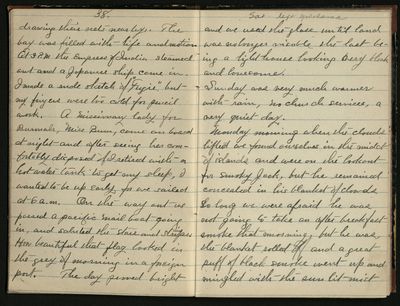 38.
drawing their nets near by. The
bay was filled with life and motion
At 3 P.M. the Empress of India steamed
out and a Japanese ship came in.
I made a rude sketch of "Fugii" but
my fingers were too cold for pencil
work. A missionary lady for
Burmah, Miss Dunn, came on board
at night and after seeing her com-
fortably disposed of I retired with a
hot water bottle to get my sleep, I
wanted to be up early, for we sailed
at 6 a.m. On the way out we
passed a pacific mail boat going
in, and saluted the stars and stripes
How beautiful that flag looked in
the grey of morning in a foreign
port. The day proved bright
and we used the glass until land
was no longer visible the last be-
ing a light house looking very bleak
and lonesome.
Sunday was very much warmer
with rain, no church services, a
very quiet day.
Monday morning when the clouds
lifted we found ourselves in the midst
of islands and were on the lookout
for smoky Jack, but he remained
concealed in his blanket of clouds
so long we were afraid he was
not going to take an after breakfast
smoke that morning, but he was,
the blanket rolled off and a great
puff of black smoke went up and
mingled with the sun lit mist